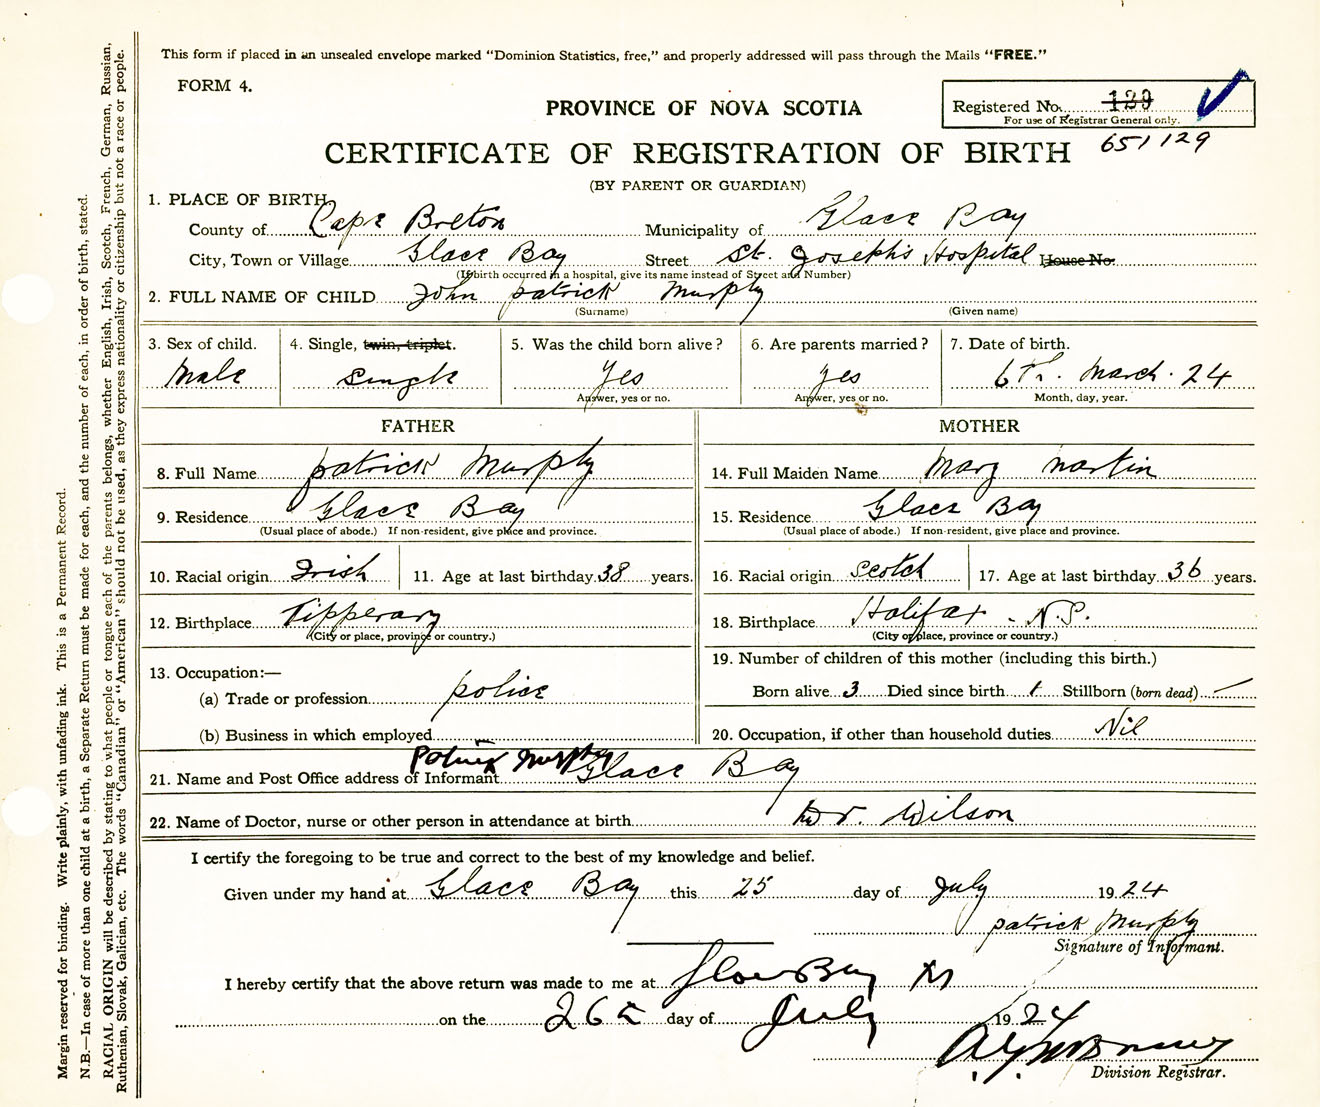 This form if placed in an unsealed envelope marked "Dominion Statistics, free," and properly addressed will pass through the Mails "FREE."
FORM 4.
PROVINCE OF NOVA SCOTIA
Registered No. 129
For use of Registrar General only.
651129
CERTIFICATE OF REGISTRATION OF BIRTH
(BY PARENT OR GUARDIAN)
1. PLACE OF BIRTH
County of Cape Breton Municipality of Glace Bay
City, Town or Village Glace Bay Street St. Joseph's Hospital House No.
(If birth occurred in a hospital, give its name instead of Street and Number)
2. FULL NAME OF CHILD John patrick Murphy
(Surname) (Given name)
3. Sex of child. 4. Single, twin, triplet. 5. Was the child born alive? 6. Are parents married? 7. Date of birth.
Male Single Yes yes 6th. March. 24
Answer, yes or no. Answer, yes or no. Month, day, year.
FATHER MOTHER
8. Full Name patrick Murphy 14. Full Maiden Name Mary Martin
9. Residence Glace Bay 15. Residence Glace Bay
(Usual place of abode.) If non-resident, give place and province. (Usual place of abode.) If non-resident, give place and province.
10. Racial origin Irish 11. Age at last birthday 38 years. 16. Racial origin Scotch 17. Age at last birthday 36 years.
12. Birthplace Tipperary 18. Birthplace Halifax - N.S.
(City or place, province or country.) (City or place, province or country.)
13. Occupation:— 19. Number of children of this mother (including this birth.)
(a) Trade or profession police Born alive 3 Died since birth 1 Stillborn (born dead) —
(b) Business in which employed 20. Occupation, if other than household duties Nil
21. Name and Post Office address of Informant Patrick Murphy Glace Bay
22. Name of Doctor, nurse or other person in attendance at birth Dr. Wilson
I certify the foregoing to be true and correct to the best of my knowledge and belief.
Given under my hand at Glace Bay this 25 day of July 1924
patrick Murphy
Signature of Informant.
I hereby certify that the above return was made to me at Glace Bay
on the 26 day of July 1924
Division Registrar.
Margin reserved for binding. Write plainly, with unfading ink. This is a Permanent Record.
N.B.—In case of more than one child at a birth, a Separate Return must be made for each, and the number of each, in order of birth, stated.
RACIAL ORIGIN will be described by stating to what people or tongue each of the parents belongs, whether English, Irish, Scotch, French, German, Russian,
Ruthenian, Slovak, Galician, etc. The words "Canadian" or "American" should not be used, as they express nationality or citizenship but not a race or people.